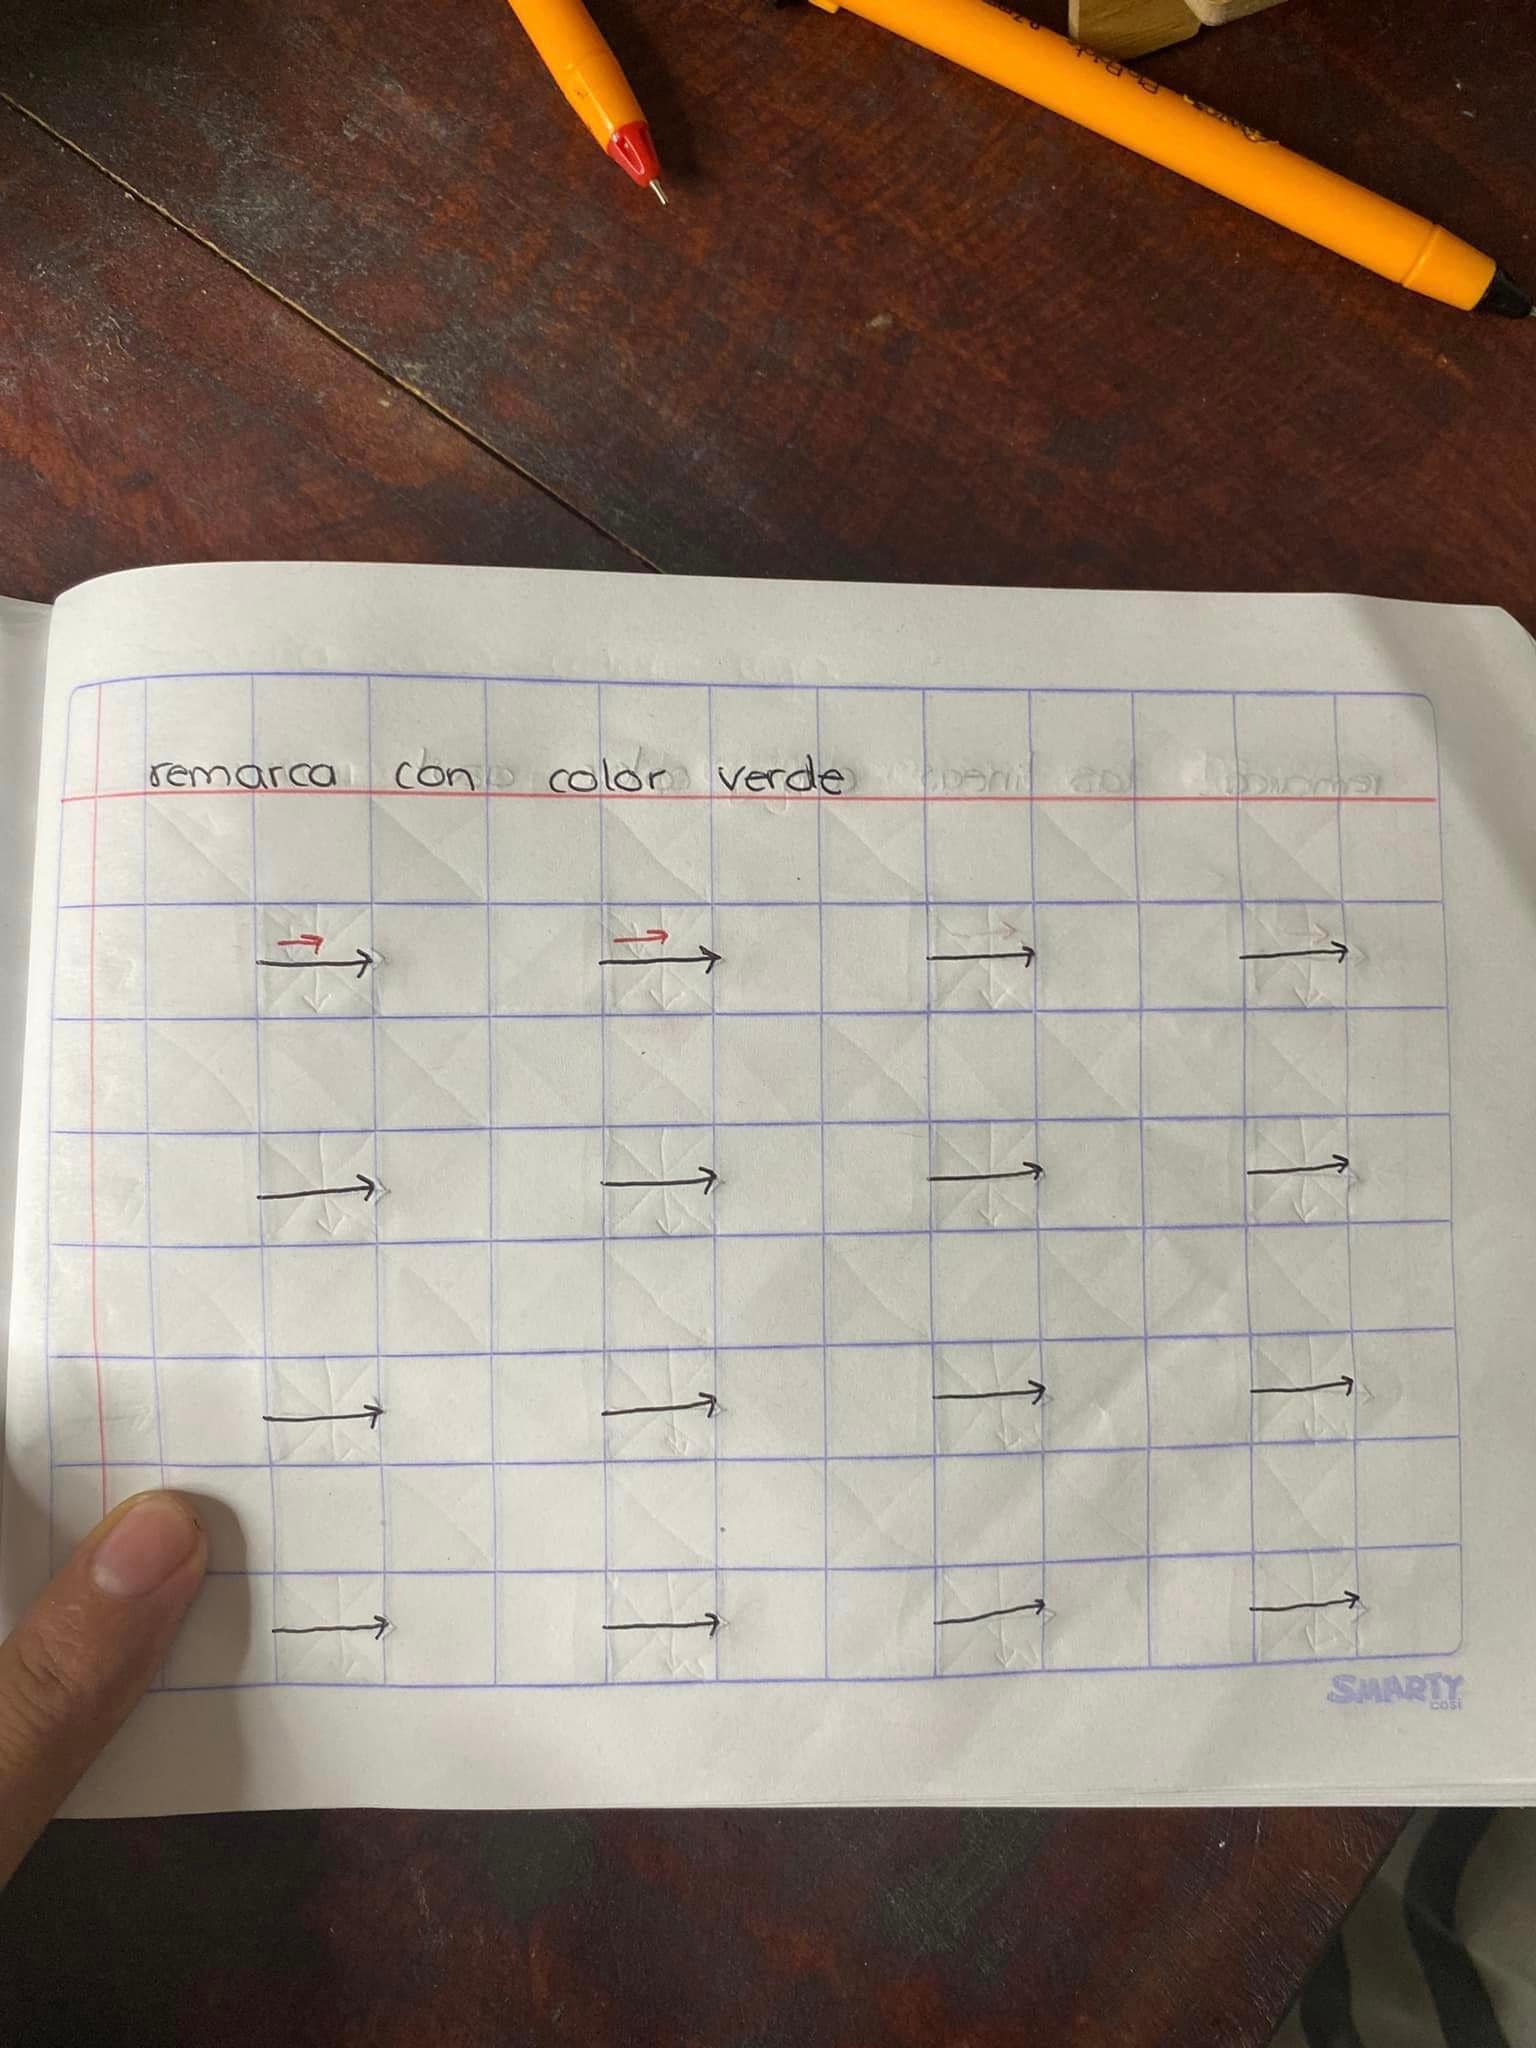 remarca con color verde
SMARTY
COSI